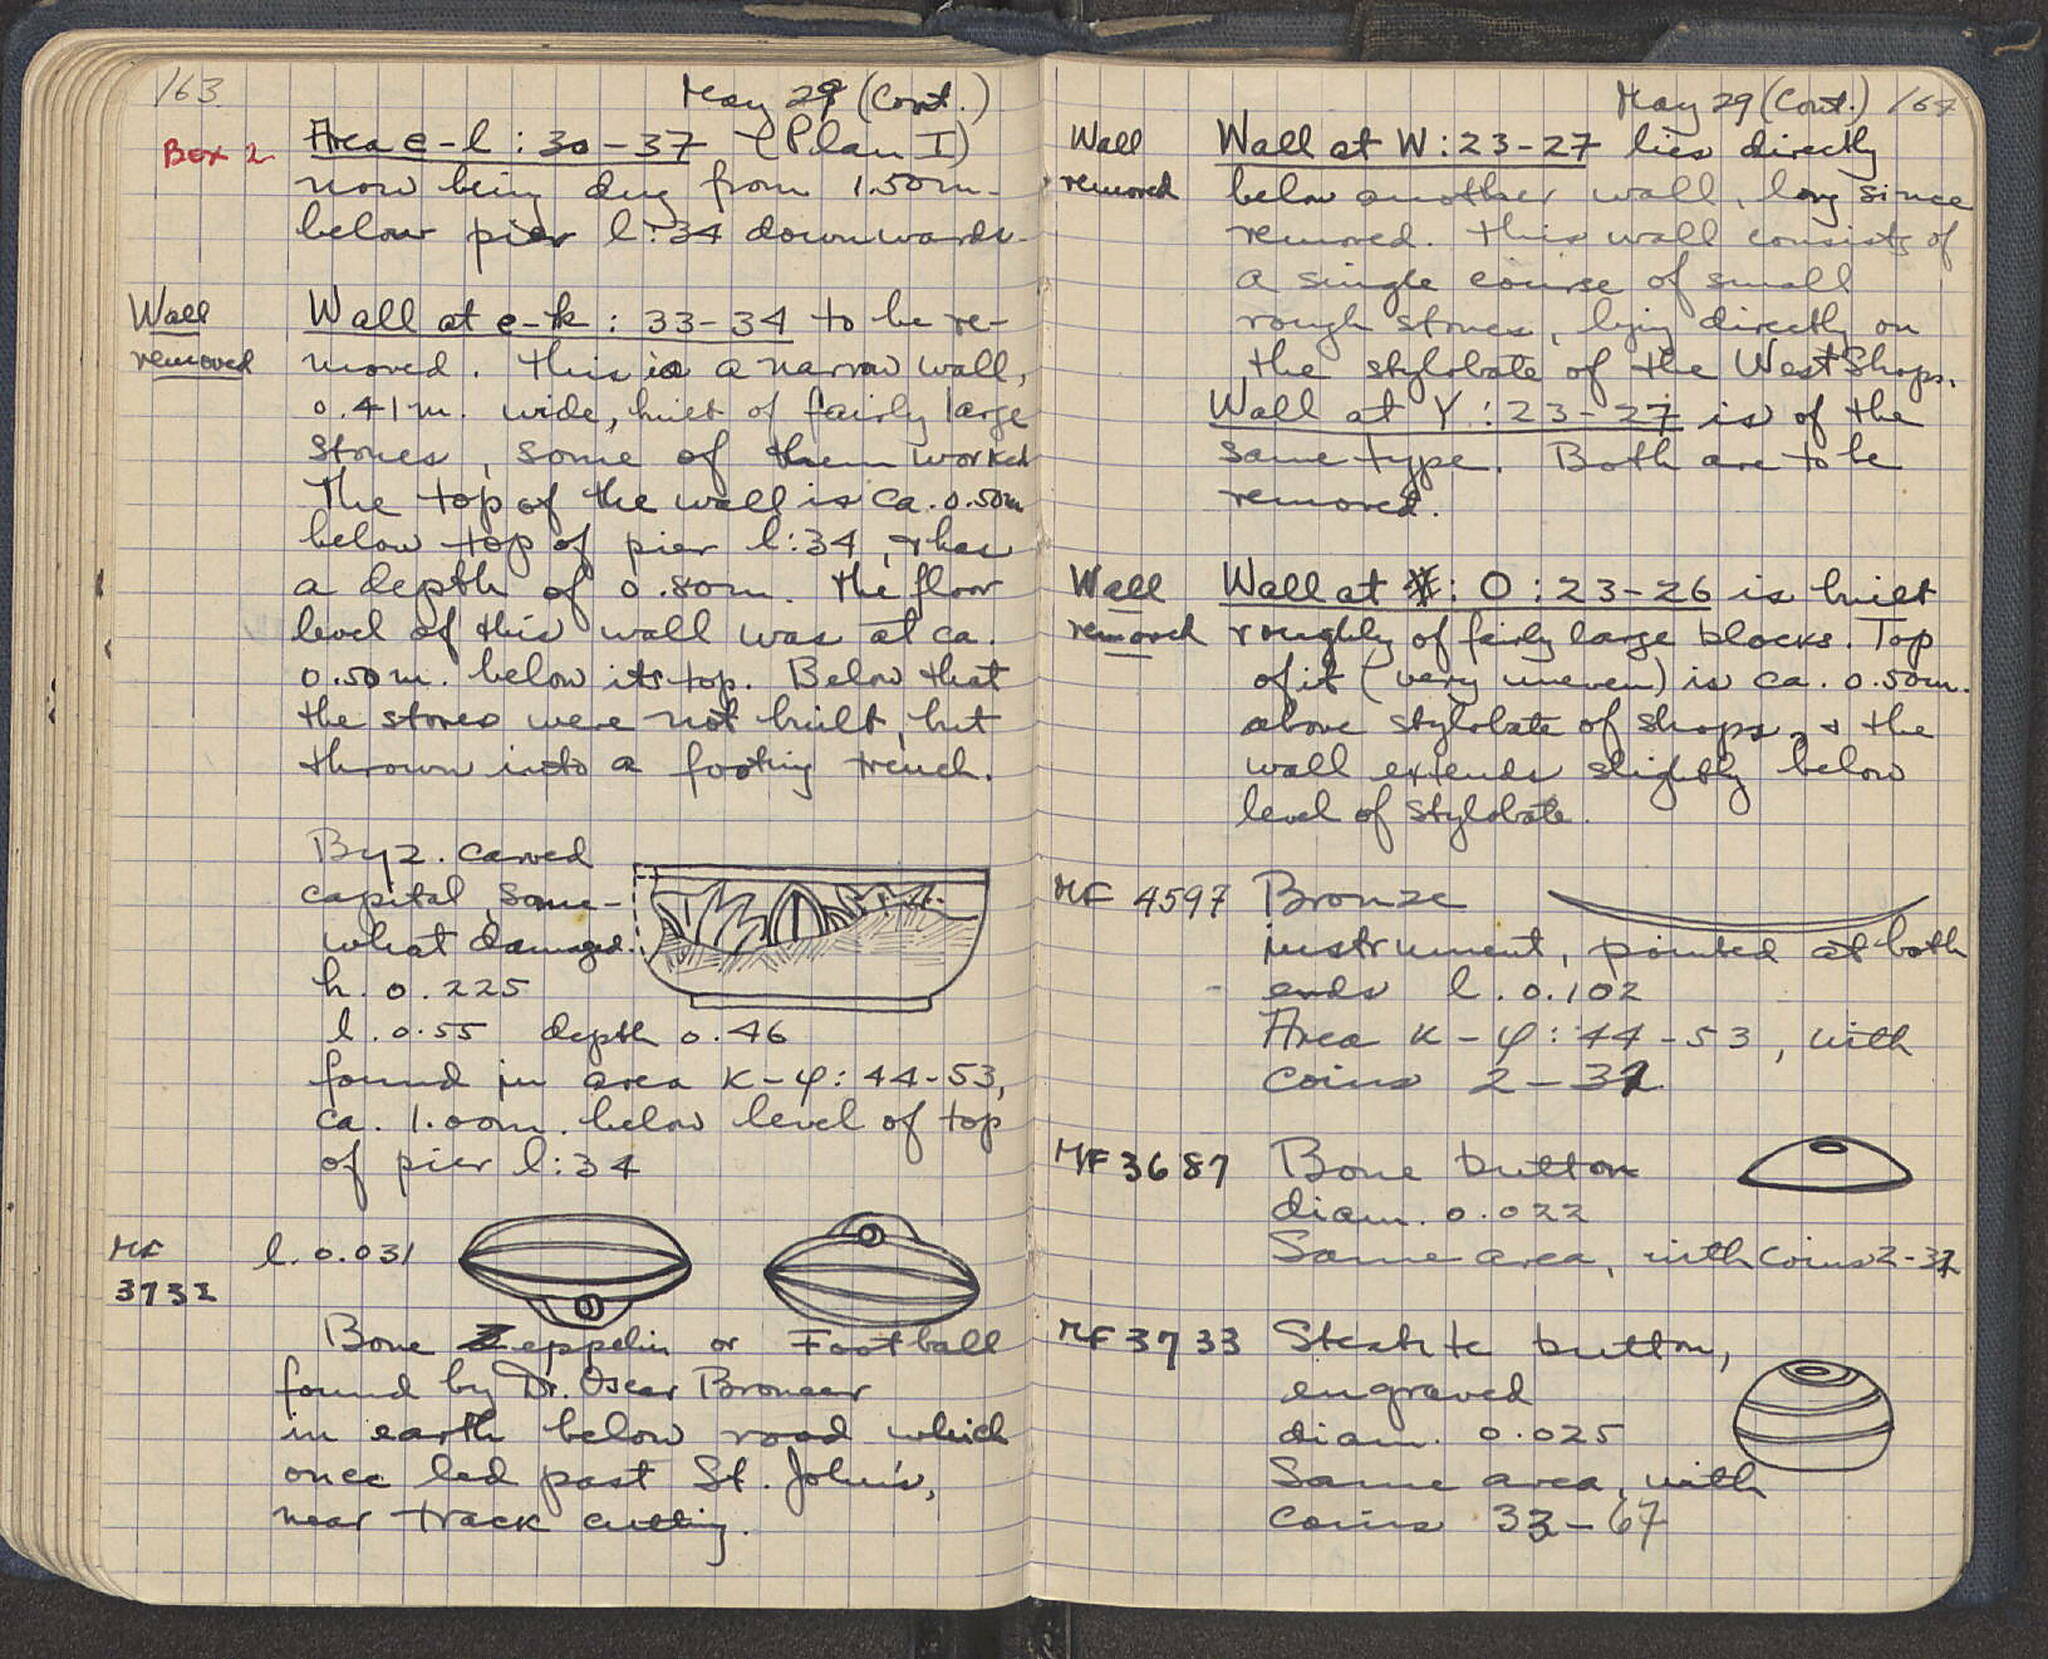 163
May 29 (Cont.)
Box 2
Area e-l : 30-37 (Plan I)
now being dug from 1.50m.
below pier l:34 downwards.
Wall removed
Wall at e-k : 33-34 to be re-
moved. This is a narrow wall,
0.41m. wide, built of fairly large
stones, some of them worked
The top of the wall is ca. 0.50m
below top of pier l:34, & has
a depth of 0.80m. The floor
level of this wall was at ca.
0.50m. below its top. Below that
the stones were not built, but
thrown into a footing trench.
Byz. carved
capital, some-
what damaged.
h. 0.225
l. 0.55 depth 0.46
found in area K-φ: 44-53,
ca. 1.00m. below level of top
of pier l:34
MF 3732
l. 0.031
Bone Zeppelin or Football
found by Dr. Oscar Broneer
in earth below road which
once led past St. John's,
near track cutting.
May 29 (Cont.) 164
Wall removed
Wall at W : 23-27 lies directly
below another wall, long since
removed. This wall consists of
a single course of small
rough stones, lying directly on
the stylobate of the West Shops.
Wall at Y : 23-27 is of the
same type. Both are to be
removed.
Wall removed
Wall at : O : 23-26 is built
roughly of fairly large blocks. Top
of it (very uneven) is ca. 0.50m.
above stylobate of shops, & the
wall extends slightly below
level of stylobate.
MF 4597 Bronze
instrument, pointed at both
ends l. 0.102
Area K-φ: 44-53, with
coins 2-32
MF 3687 Bone button
diam. 0.022
Same area, with coins 2-32
MF 3733 Steatite button,
engraved
diam. 0.025
Same area, with
coins 33-67